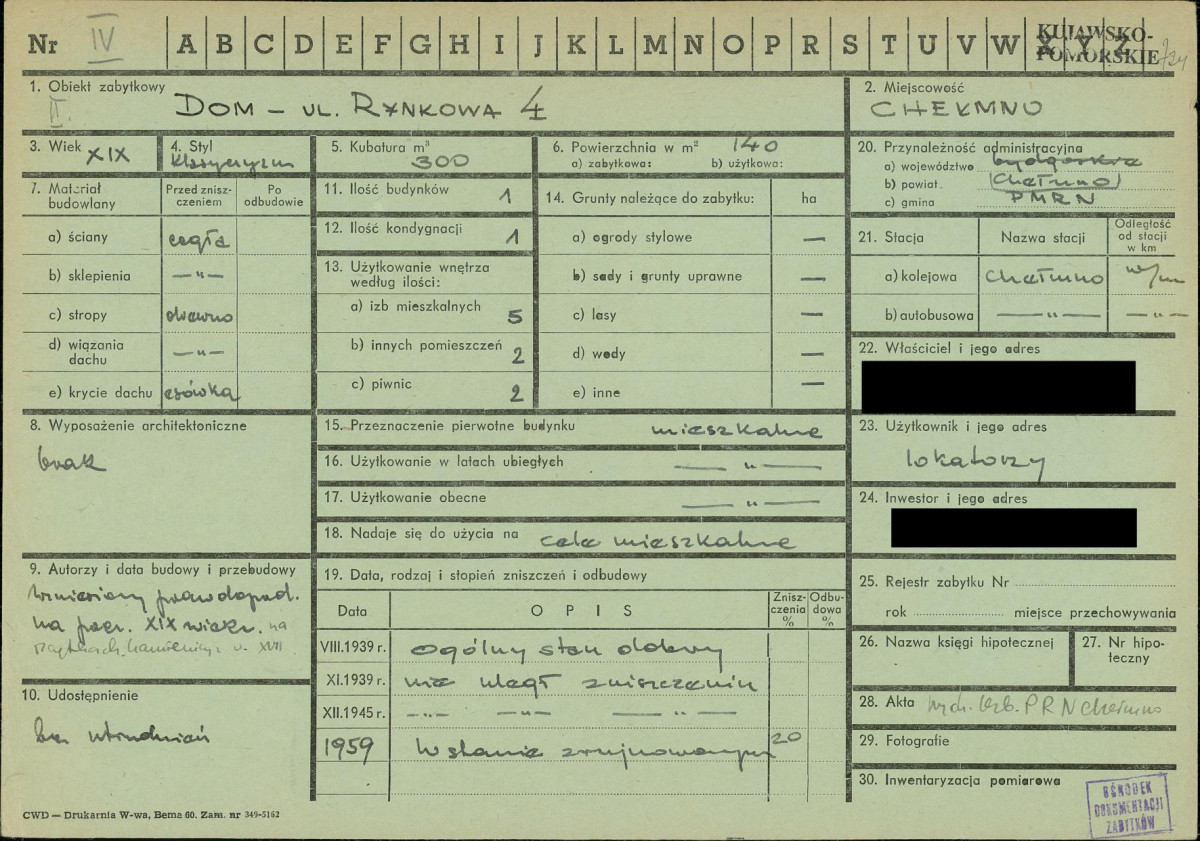 Nr IV A B C D E F G H I J K L M N O P R S T U V W X Y Z
KUJAWSKO-
POMORSKIE
1. Obiekt zabytkowy
II.
DOM – UL. RYNKOWA 4
2. Miejscowość
CHEŁMNO
3. Wiek XIX
4. Styl
Klasycyzm
5. Kubatura m³
300
6. Powierzchnia w m² 140
a) zabytkowa: b) użytkowa:
20. Przynależność administracyjna
a) województwo bydgoskie
b) powiat. (Chełmno)
c) gmina PMRN
7. Materiał
budowlany
Przed znisz-
czeniem
Po
odbudowie
a) ściany cegła
b) sklepienia —"—
c) stropy drewno
d) wiązania
dachu —"—
e) krycie dachu esówka
11. Ilość budynków 1
12. Ilość kondygnacji 1
13. Użytkowanie wnętrza
według ilości:
a) izb mieszkalnych 5
b) innych pomieszczeń 2
c) piwnic 2
14. Grunty należące do zabytku: ha
a) ogrody stylowe —
b) sady i grunty uprawne —
c) lasy —
d) wody —
e) inne —
21. Stacja Nazwa stacji
Odległość
od stacji
w km
a) kolejowa Chełmno w/m
b) autobusowa —"— —"—
22. Właściciel i jego adres
8. Wyposażenie architektoniczne
brak
15. Przeznaczenie pierwotne budynku mieszkalne
16. Użytkowanie w latach ubiegłych —"—
17. Użytkowanie obecne —"—
18. Nadaje się do użycia na cele mieszkalne
23. Użytkownik i jego adres
lokatorzy
24. Inwestor i jego adres
9. Autorzy i data budowy i przebudowy
wzniesiony prawdopod.
na pocz. XIX wieku. na
resztkach kamienicy z w. XVII
10. Udostępnienie
bez utrudnień
19. Data, rodzaj i stopień zniszczeń i odbudowy
Data OPIS
Znisz-
czenia
%
Odbu-
dowa
%
VIII.1939 r. ogólny stan dobry
XI.1939 r. nie uległ zniszczeniu
XII.1945 r. —"— —"— —"—
1959 W stanie zrujnowanym 20
25. Rejestr zabytku Nr
rok miejsce przechowywania
26. Nazwa księgi hipotecznej
27. Nr hipo-
teczny
28. Akta PRN Chełmno
29. Fotografie
30. Inwentaryzacja pomiarowa
OŚRODEK
DOKUMENTACJI
ZABYTKÓW
CWD — Drukarnia W-wa, Bema 60. Zam. nr 349-5162